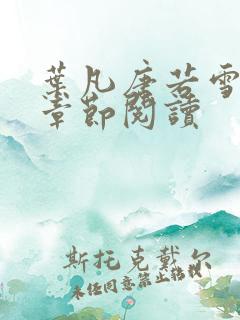 葉凡唐若雪
章節閱讀
斯托克戴尔
未经同意禁止转载